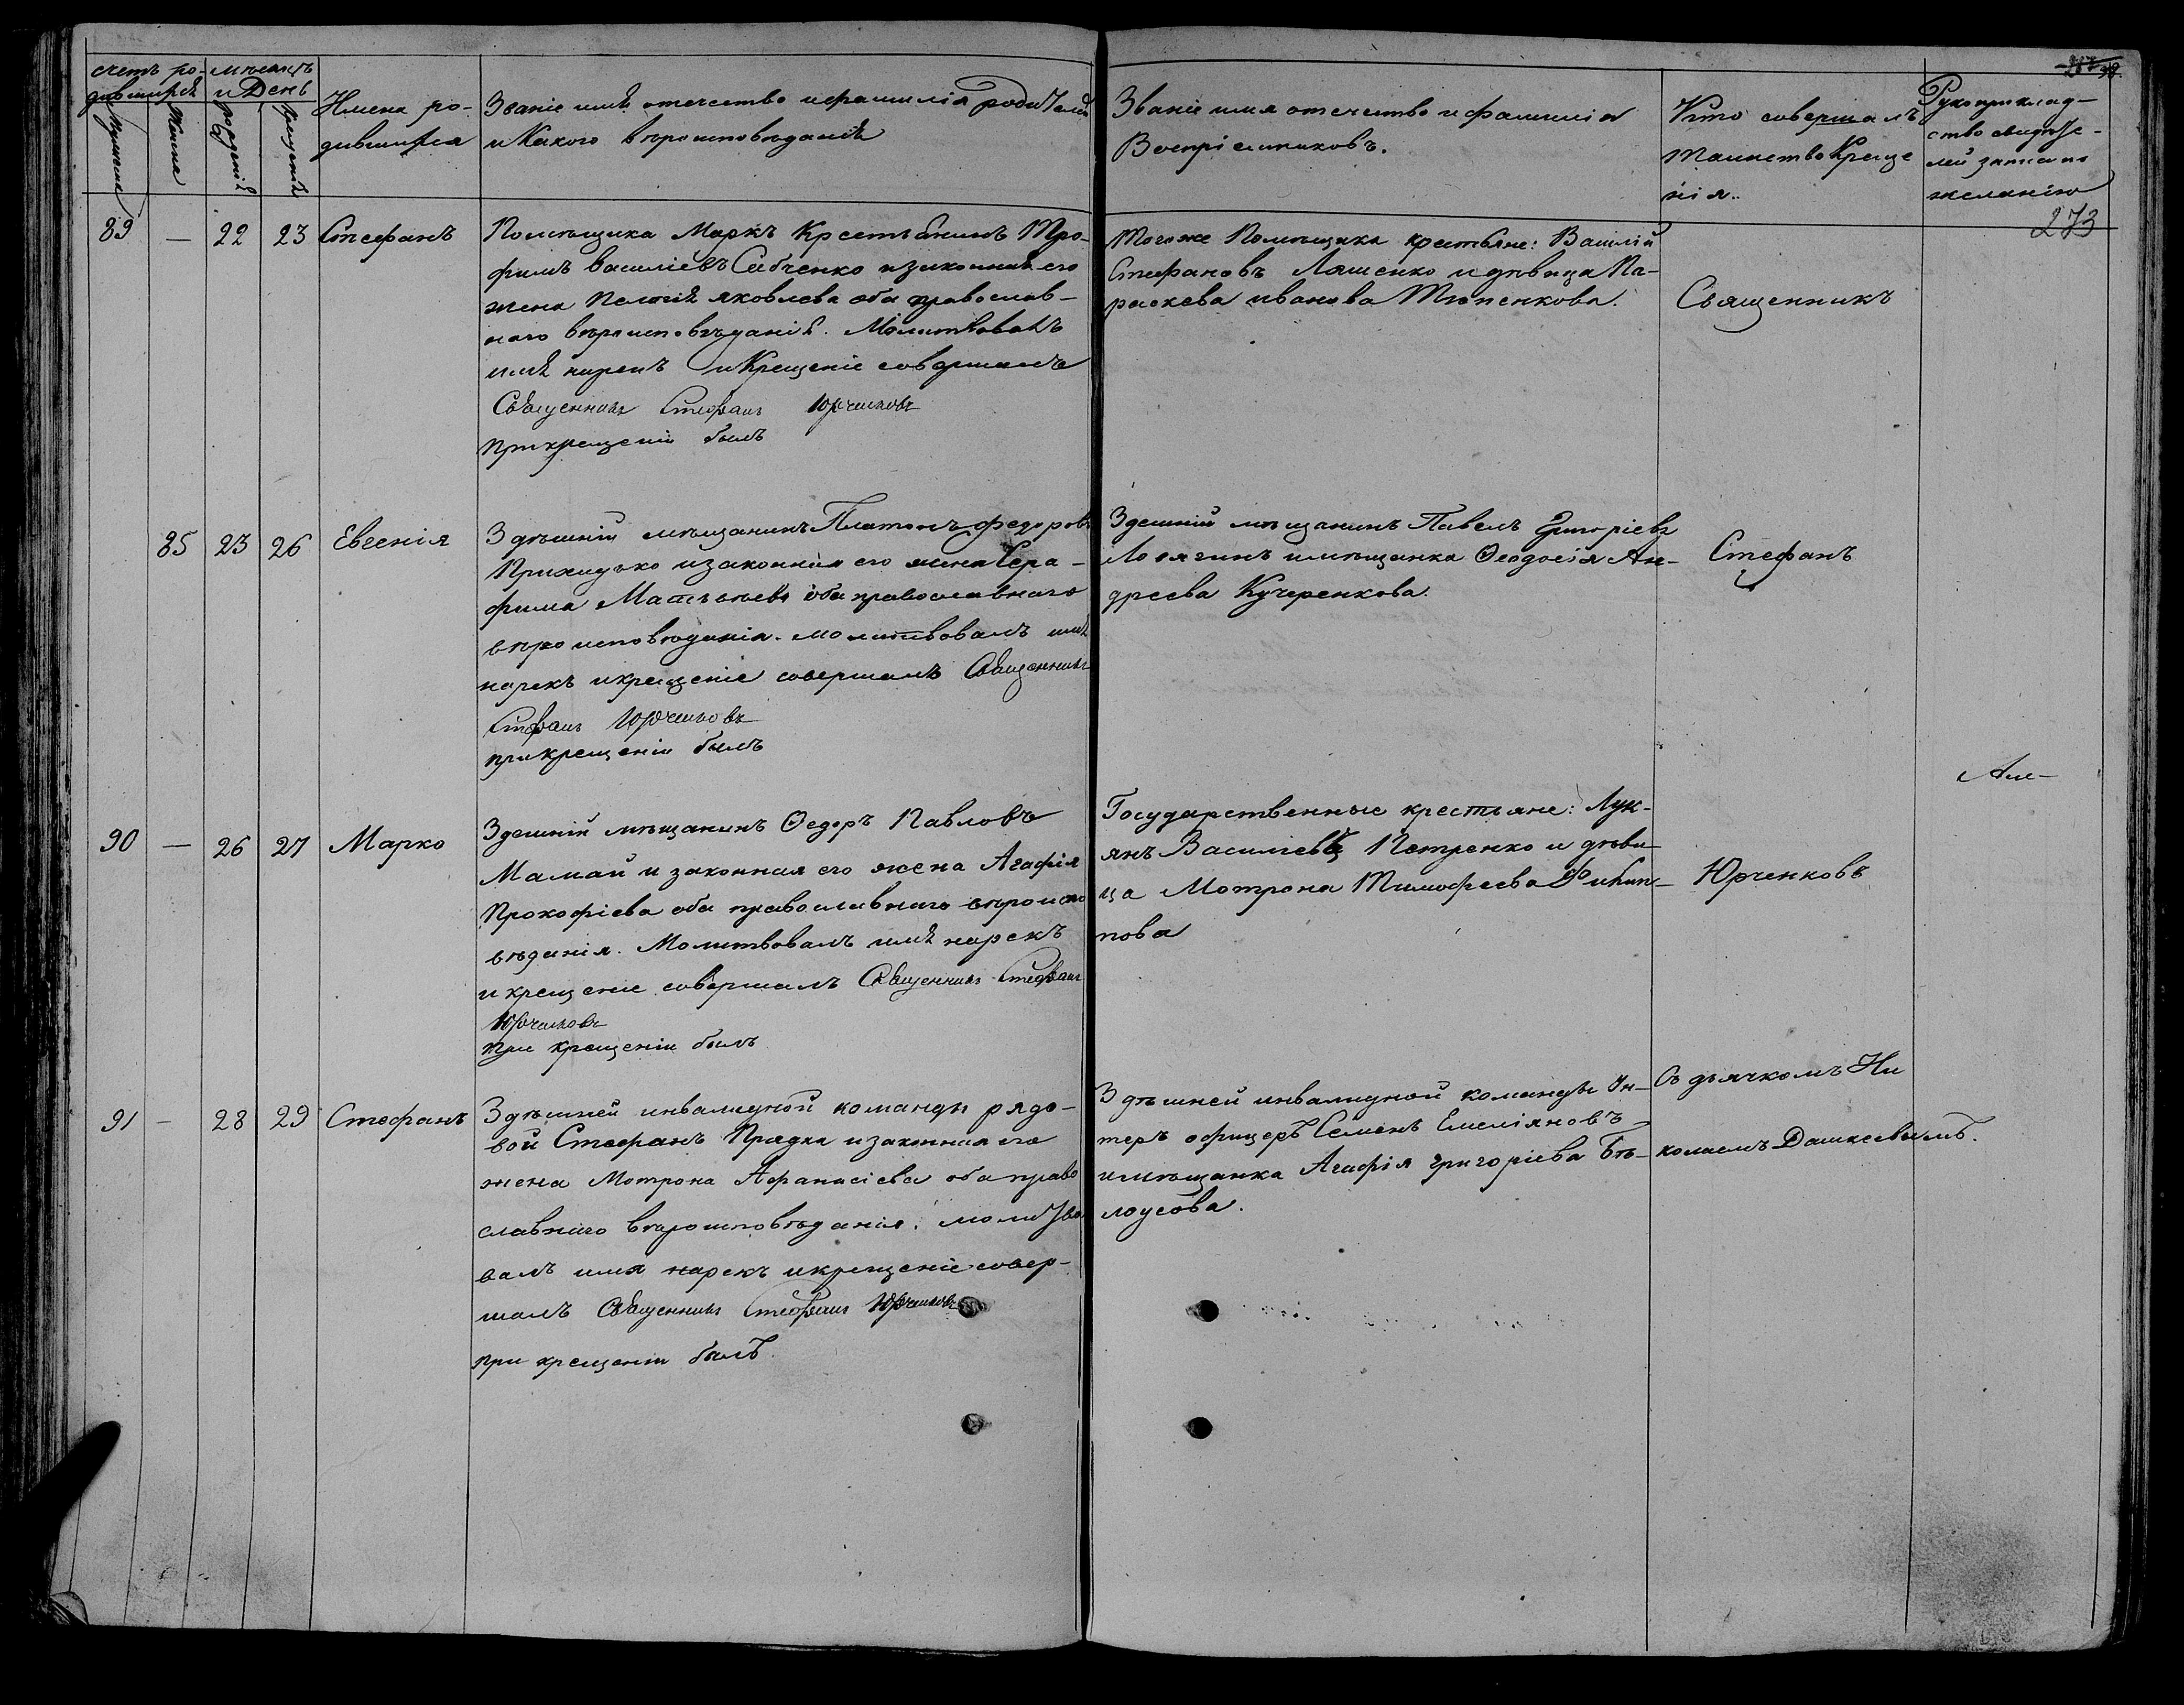 счетъ ро-
дившихся
мѣсяцъ
и День
Мужеска
Женска
рожденія
крещенія
Имена ро-
дившихся
Званіе имя отечество и фамилія родителей
и Какого вѣроисповѣданія
Званіе имя отечество и фамилія
Воспріемниковъ.
Кто совершалъ
таинство Креще
нія.
Рукоприклад-
ство свидѣте-
лей записи по
желанію
273
89 — 22 23 Стефанъ
Помѣщика Маркъ Крестьянинъ Тро-
фимъ Василіевъ Сабченко и законная его
жена Яковлева оба православ-
наго вѣроисповѣданія. Молитвовалъ
имя нарекъ и Крещеніе совершалъ
Священникъ Стефанъ Юрченковъ
При крещеніи былъ
Тогоже Помѣщика крестьяне: Василій
Стефановъ Ляшенко и дѣвица Па-
раскева иванова Тюпенкова.
Священникъ
85 23 26 Евгенія
Здѣшній мѣщанинъ Платонъ федоровъ
Прихидько и законная его жена Сера-
фима Матѣева оба православнаго
вѣроисповѣданія. Молитвовалъ имя
нарекъ и крещеніе совершалъ Священникъ
Стефанъ Юрченковъ
при крещеніи былъ
Здешній мѣщанинъ Павелъ Григоріевъ
Лосягинъ и мѣщанка Ѳеодосія Ан-
дреева Кучеренкова.
Стефанъ
90 — 26 27 Марко
Здешній мѣщанинъ Ѳедоръ Павловъ
Мамай и законная его жена Агафія
Прокофіева оба православнаго вѣроиспо
вѣданія. Молитвовалъ имя нарекъ
и крещеніе совершалъ Священникъ Стефанъ
Юрченковъ
при крещеніи былъ
Государственные крестьяне: Лук-
янъ Василіевъ Петренко и дѣви-
ца Мотрона Тимофеева Филип-
пова
Юрченковъ
91 — 28 29 Стефанъ
Здѣшней инвалидной команды рядо-
вой Стефанъ Прядка и законная его
жена Мотрона Афанасіева оба право
славнаго вѣроисповѣданія. молитво
валъ имя нарекъ и крещеніе совер-
шалъ Священникъ Стефанъ Юрченковъ
при крещеніи былъ
Здѣшней инвалидной команды Ун-
теръ офицеръ Семенъ Емеліяновъ
и мѣщанка Агафія Григоріева Бѣ-
лоусова.
Съ дьячкомъ Ни
колаемъ Дашкевичемъ.